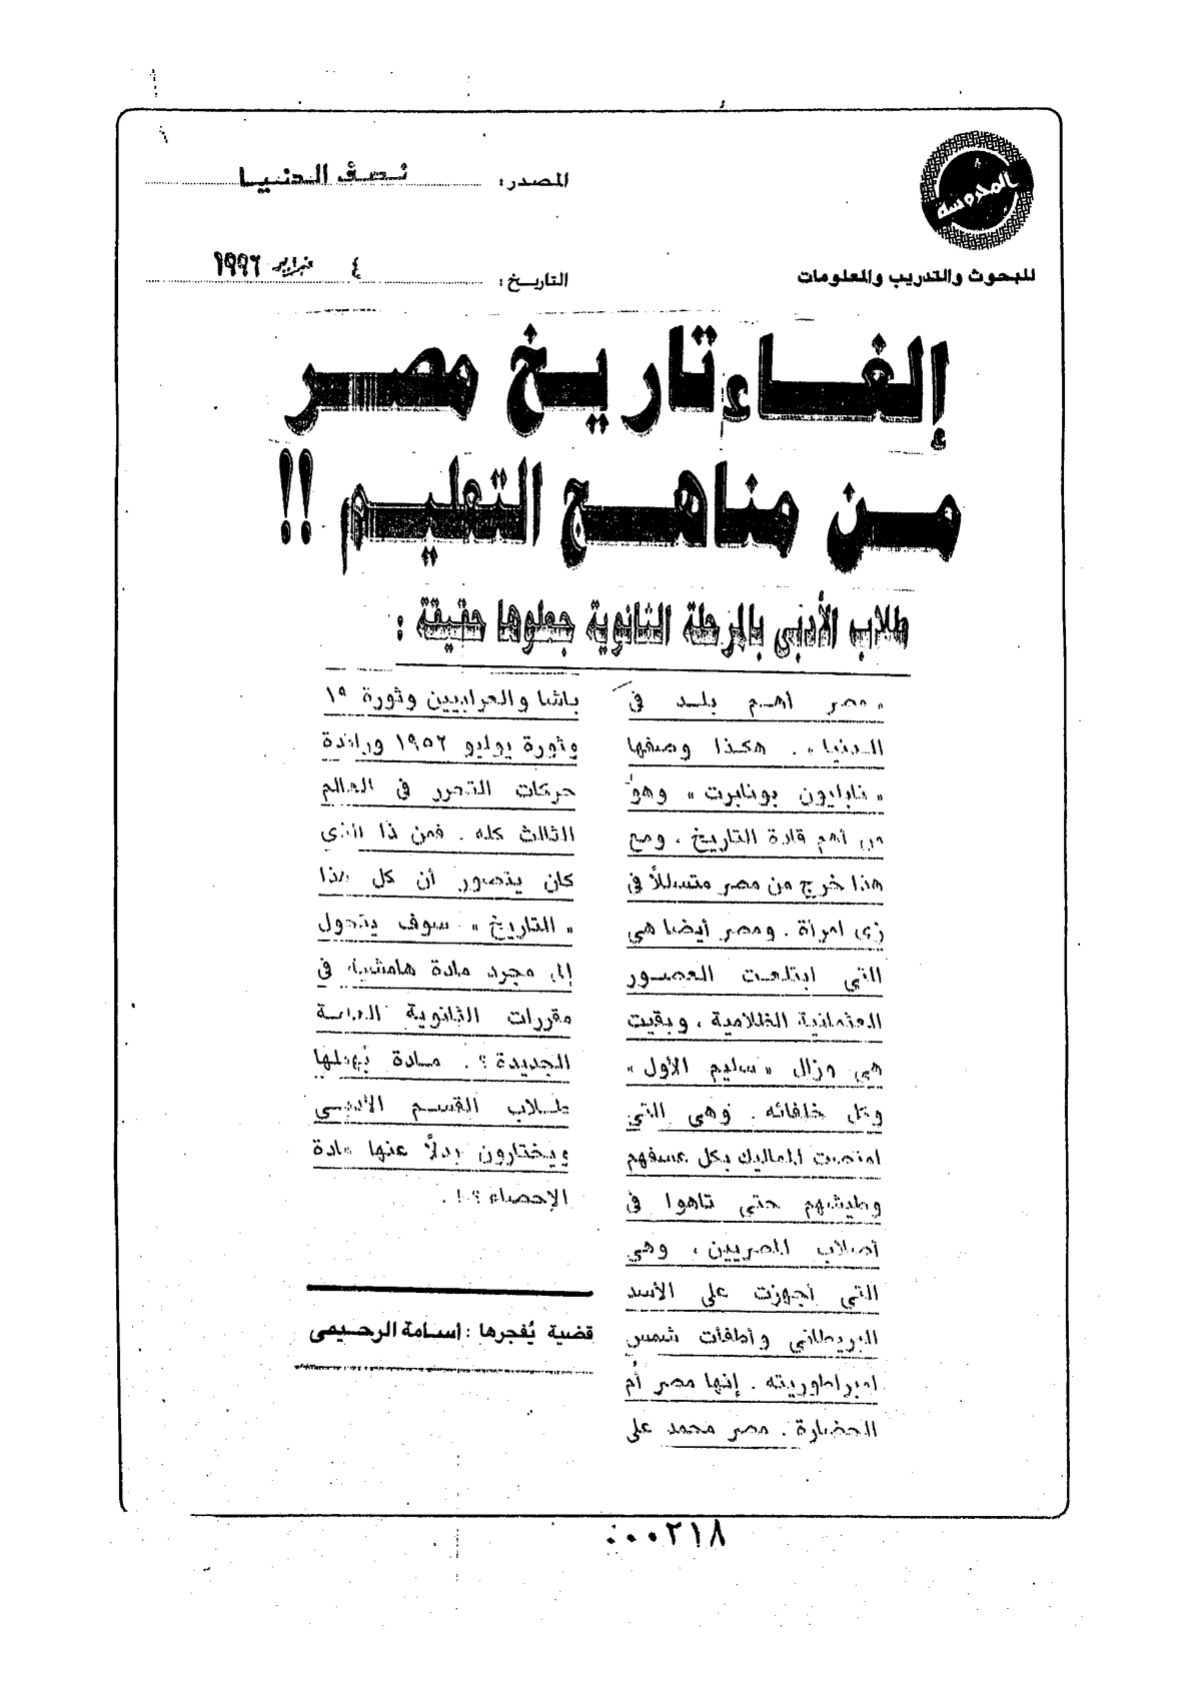 المحروسة
للبحوث والتدريب والمعلومات
المصدر: نصف الدنيا
التاريخ: ٤ فبراير ١٩٩٦
إلغاء تاريخ مصر
من مناهج التعليم !!
طلاب الأدبى بالمرحلة الثانوية جعلوها حقيقة :
« مصر أهم بلد فى
الدنيا » . هكذا وصفها
« نابليون بونابرت » وهو
من أهم قادة التاريخ ، ومع
هذا خرج من مصر متسللاً فى
زى امرأة . ومصر أيضا هى
التى ابتلعت العصور
العثمانية الظلامية ، وبقيت
هى وزال « سليم الأول »
وكل خلفائه . وهى التى
امتصت المماليك بكل عسفهم
وطيشهم حتى تاهوا فى
أصلاب المصريين ، وهى
التى أجهزت على الأسد
البريطانى وأطفأت شمس
امبراطوريته . إنها مصر أم
الحضارة . مصر محمد على
باشا والعرابيين وثورة ١٩
وثورة يوليو ١٩٥٢ ورائدة
حركات التحرر فى العالم
الثالث كله . فمن ذا الذى
كان يتصور أن كل هذا
« التاريخ » سوف يتحول
إلى مجرد مادة هامشية فى
مقررات الثانوية العامة
الجديدة ؟ . مادة يُهملها
طلاب القسم الأدبى
ويختارون بدلاً عنها مادة
الإحصاء ؟ ! .
قضية يُفجرها : أسامة الرحيمى
٠٠٠٢١٨